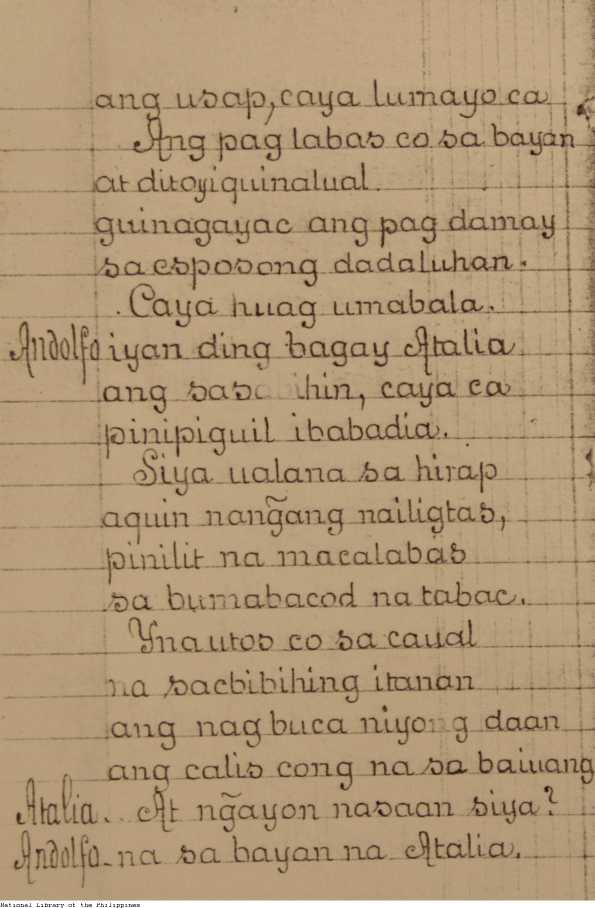 ang usap, caya lumayo ca
Ang pag labas co sa bayan
at ditoyiquinalual.
guinagayac ang pag damay
sa esposong dadaluhan.
Caya huag umabala.
Andolfo iyan ding bagay Atalia
ang sasabihin, caya ca
pinipiguil ibabadia.
Siya ualana sa hirap
aquin nang̃ang nailigtas,
pinilit na macalabas
sa bumabacod na tabac.
Ynautos co sa caual
na sacbibihing itanan
ang nag buca niyong daan
ang calis cong na sa baiuang
Atalia.. At ng̃ayon nasaan siya?
Andolfo-na sa bayan na Atalia.
National Library of the Philippines